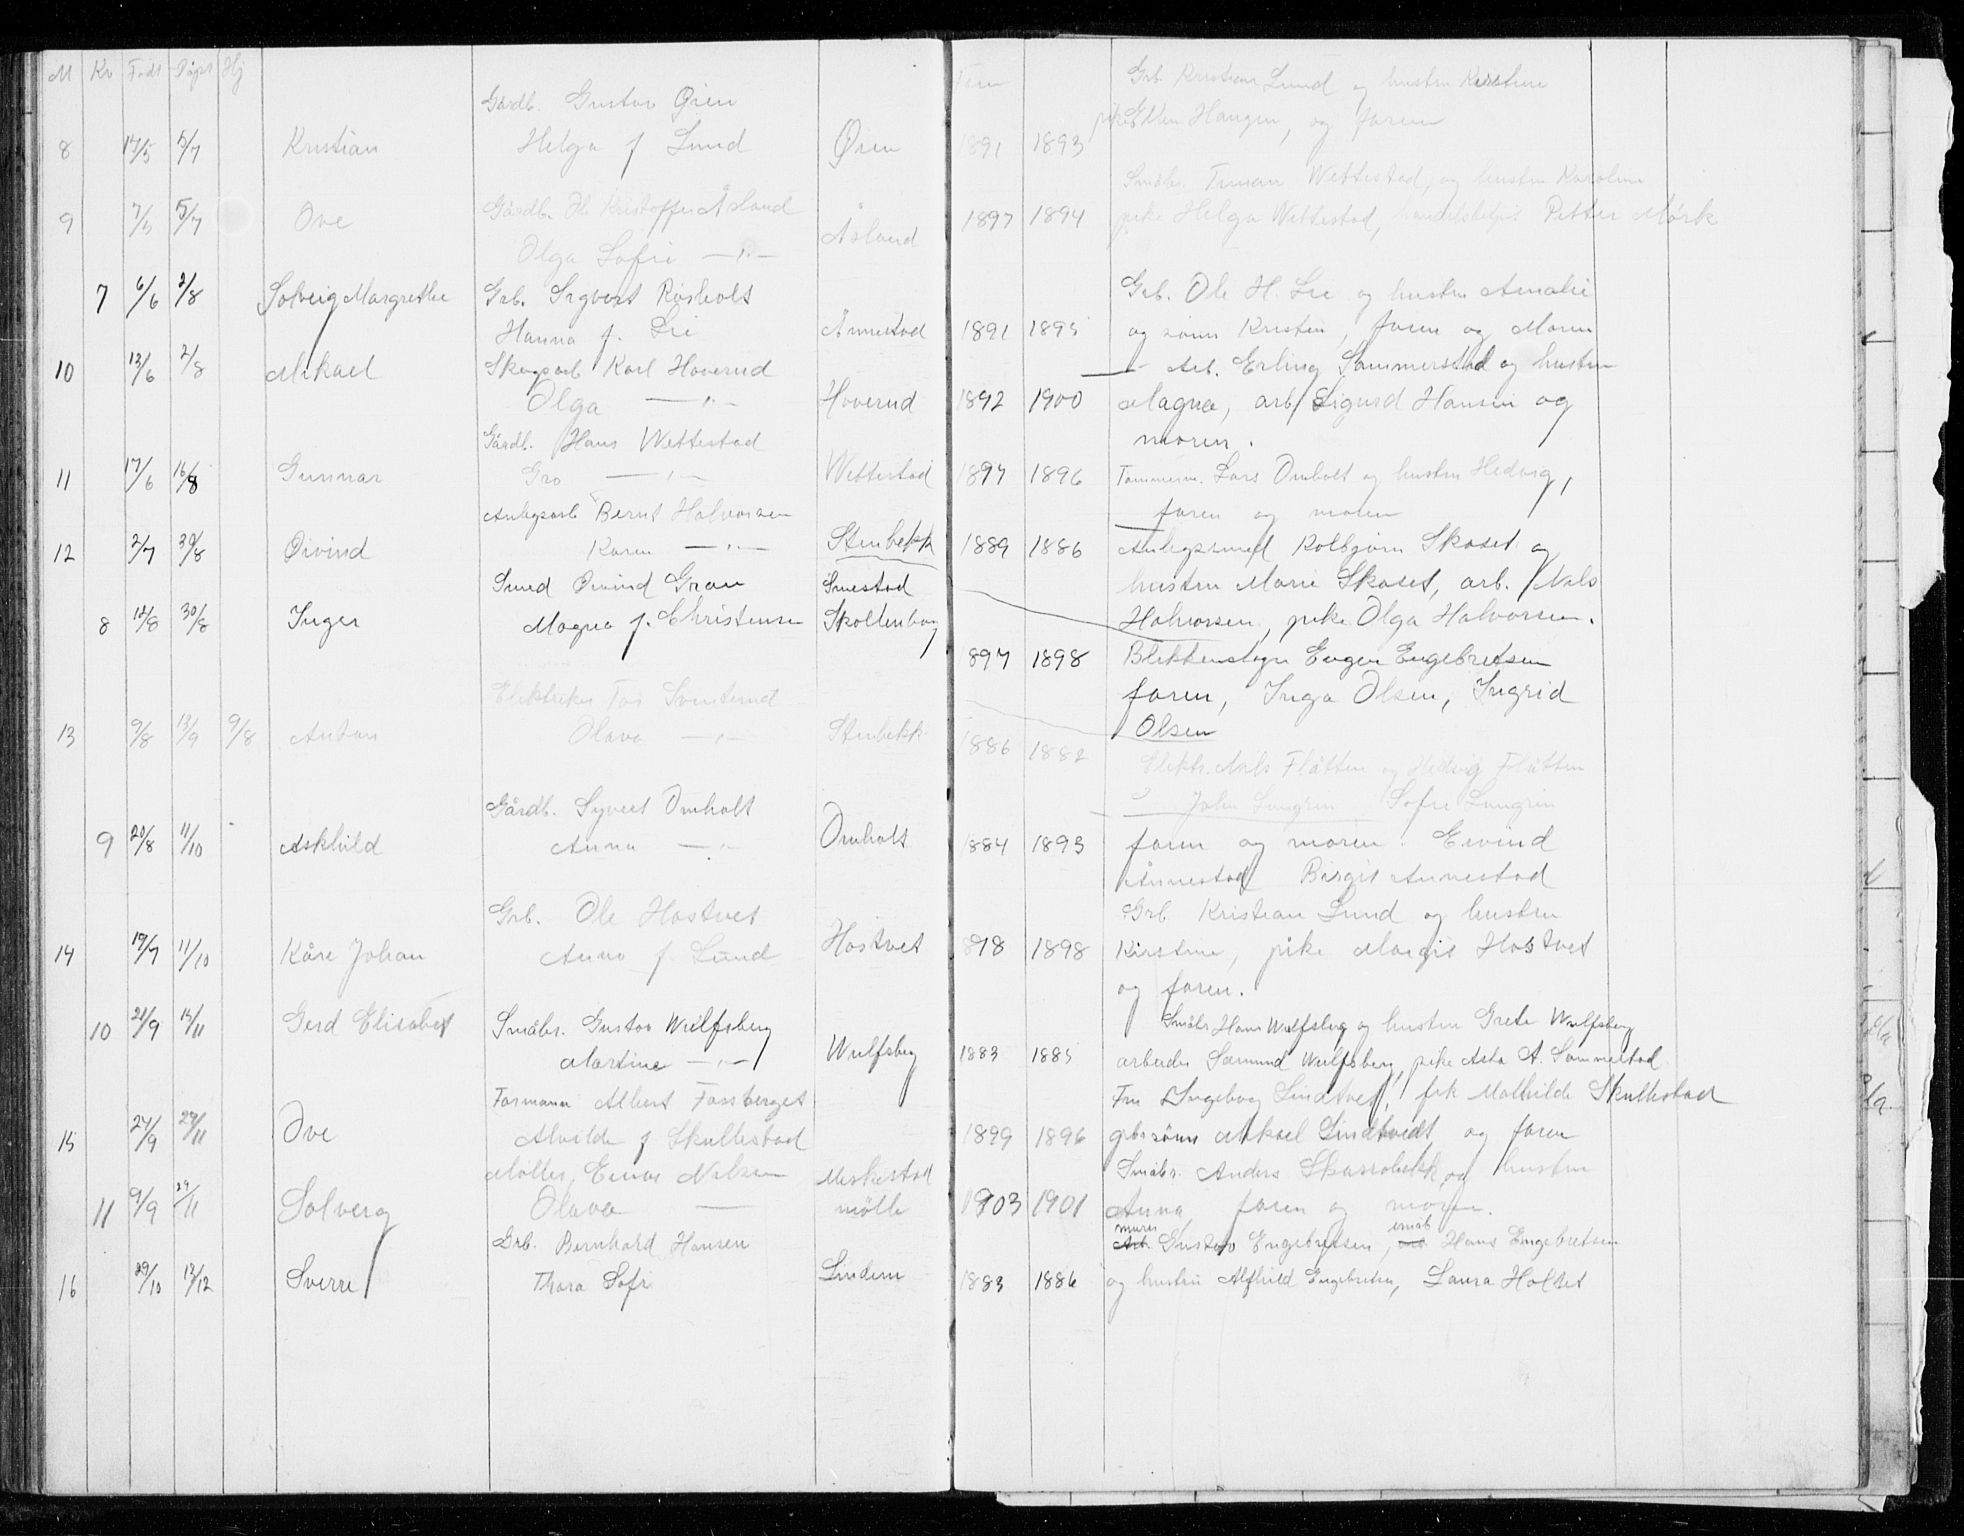 M Kv Født Døpt Hj
Gårdb. Gustav Øien
8 14/5 5/7 Kristian Helga f Lund Øien
Gårdb. Kristoffer Åsland
9 7/5 5/7 Ove Åsland
Olga Sofie —"—
7 6/6 2/8 Solveig Margrethe Grb. Sigvart Røsholt
Hanna f. Lie Annestad
10 13/6 2/8 Mikael Skogsarb Karl Hoverud
Olga —"— Hoverud
Gårdb. Hans Wettestad
11 17/6 16/8 Gunnar Gro —"— Wettestad
Anlegsarb Bernt Halvorsen
12 2/7 30/8 Øivind Karen —"— Stenbekk
Smed Øivind Gran Smestad
8 12/8 30/8 Inger Magna f. Christensen Skoltenborg
Elektriker Svensterud
13 9/8 13/9 9/8 Anton Olava —"— Stenbekk
Gårdb. Syvert Omholt
9 20/8 11/10 Askhild Anna —"— Omholt
Grb. Ole Hostvet
14 19/7 11/10 Kåre Johan Anna f. Lund Hostvet
10 21/9 15/11 Gerd Elisabet Småbr. Gustav Wulfsberg
Martine —"— Wulfsberg
Formann Albert Fossberget
15 24/9 29/11 Ove Alvilde f Skullestad
Møller, Einar Nilsen Meskestad
11 9/9 29/11 Solveig Olava — mølle
Grb. Bernhard Hansen
16 29/10 13/12 Sverre Thora Sofi Lindem
Grb. Kristian Lund og hustru Kirstine
pike Ellen Haugen, og faren
1891 1893
Småbr. Wettestad, og hustru Karoline
1897 1894 pike Helga Wettestad, Petter Mørk
Grb. Ole H. Lie og hustru Amalie
1891 1895 og sønn Kristen, faren og Moren
Arb. Erling Sommerstad og hustru
1892 1900 Magna, arb. Sigurd Hansen og
moren.
1897 1896 Tømmerm. Lars Omholt og hustru Hedvig,
faren og moren
1889 1886 Anlegssmed Kolbjørn Skaset og
hustru Marie Skaset, arb. Nils
Halvorsen, pike Olga Halvorsen.
897 1898 Blikkenslager Eugen Engebretsen
faren, Inga Olsen, Ingrid
Olsen
1886 1882
Elektr. Nils Flåtten og Hedvig Flåtten
John Lungren Sofie Lungren
1884 1893 faren og moren. Eivind
Annestad Birgit Annestad
Grb Kristian Lund og hustru
898 1898 Kirstine, pike Margit Hostvet
og faren.
Småbr Hans Wulfsberg og hustru Grete Wulfsberg
1883 1885 arbeider Sæmund Wulfsberg, pike Asta A. Sommerstad
Fru Ingeborg Lindtvet, frk Mathilde Skullestad
1899 1896 grbr.sønn Mikael Lindtvedt og faren
Småbr. Anders Skarrabekk og hustru
1903 1901 Anna faren og moren.
murer småb
Arb. Gustav Engebretsen, arb Hans Engebretsen
1883 1886 og hustru Alfhild Engebretsen, Laura Holtet